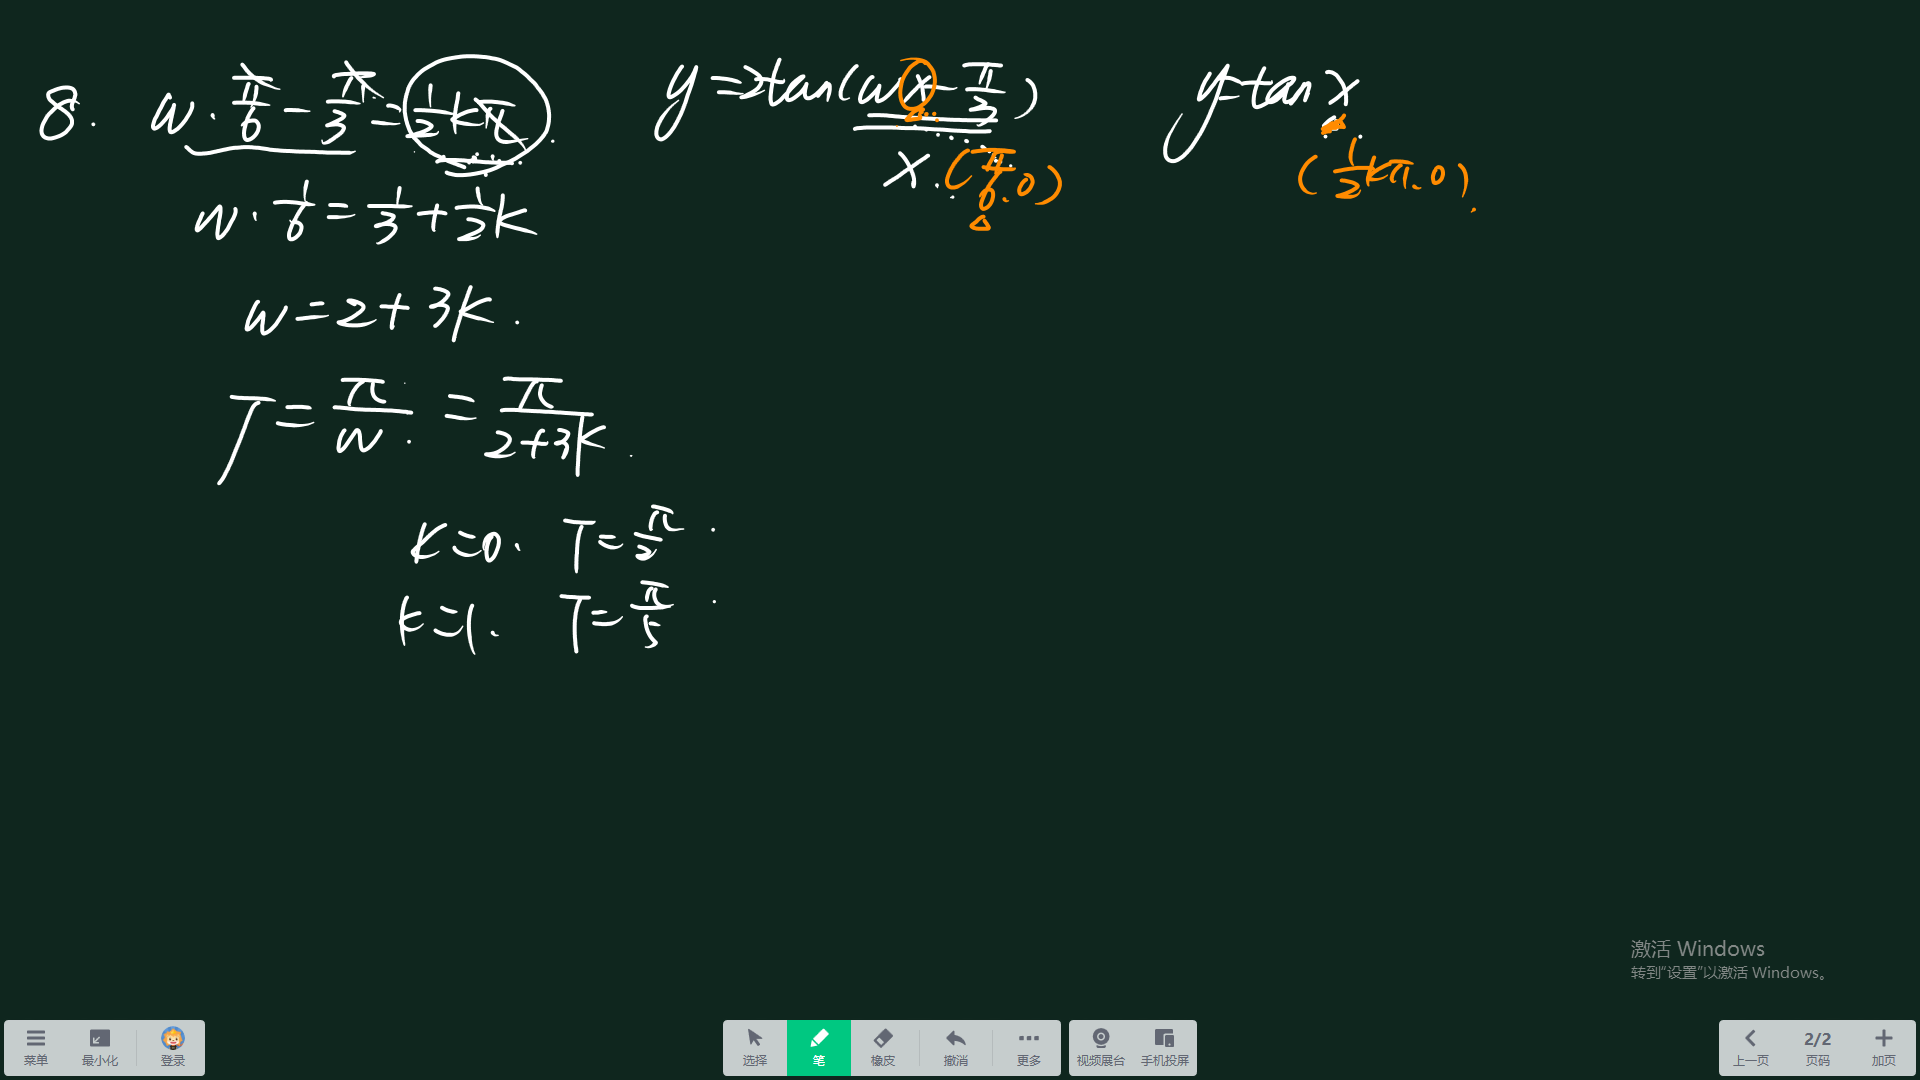 8. w·π/6 - π/3 = 1/2 kπ.
w·1/6 = 1/3 + 1/2 k
w = 2 + 3k.
T = π/w. = π/(2+3k).
k=0. T=π/2.
k=1. T=π/5.
y = 2tan(wx - π/3)
x. (π/6.0)
y=tan x
(1/2 kπ.0).
激活 Windows
转到“设置”以激活 Windows。
菜单 最小化 登录
选择 笔 橡皮 撤消 更多 视频展台 手机投屏
2/2
上一页 页码 加页